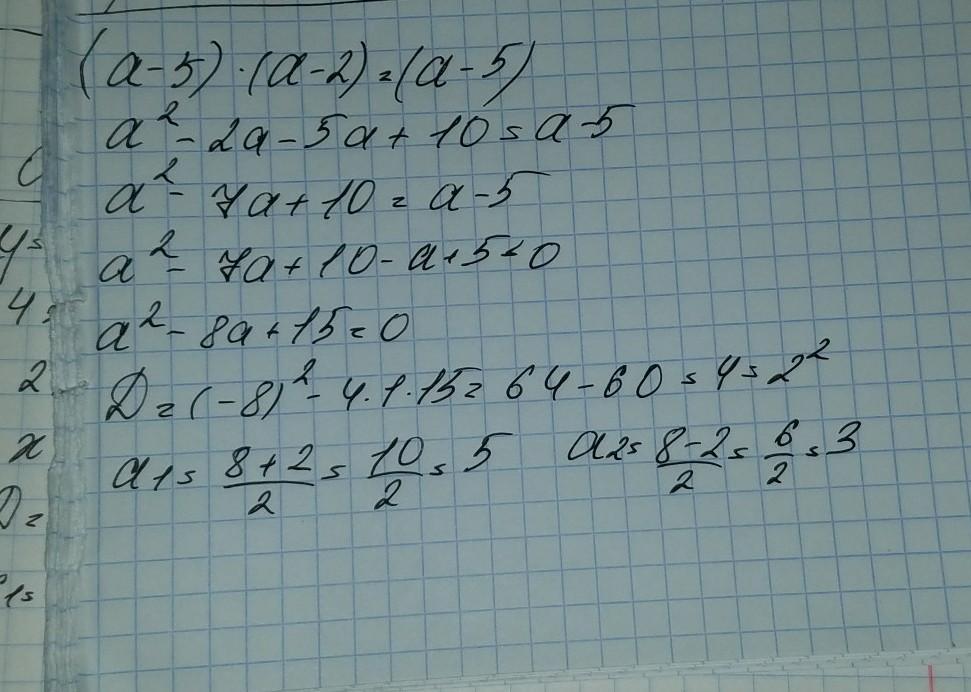 (a-5)·(a-2)=(a-5)
a²-2a-5a+10=a-5
a²-7a+10=a-5
a²-7a+10-a+5=0
a²-8a+15=0
D=(-8)²-4·1·15=64-60=4=2²
a1=\frac{8+2}{2}=\frac{10}{2}=5 a2=\frac{8-2}{2}=\frac{6}{2}=3
y=
4=
2
x
D=
1=